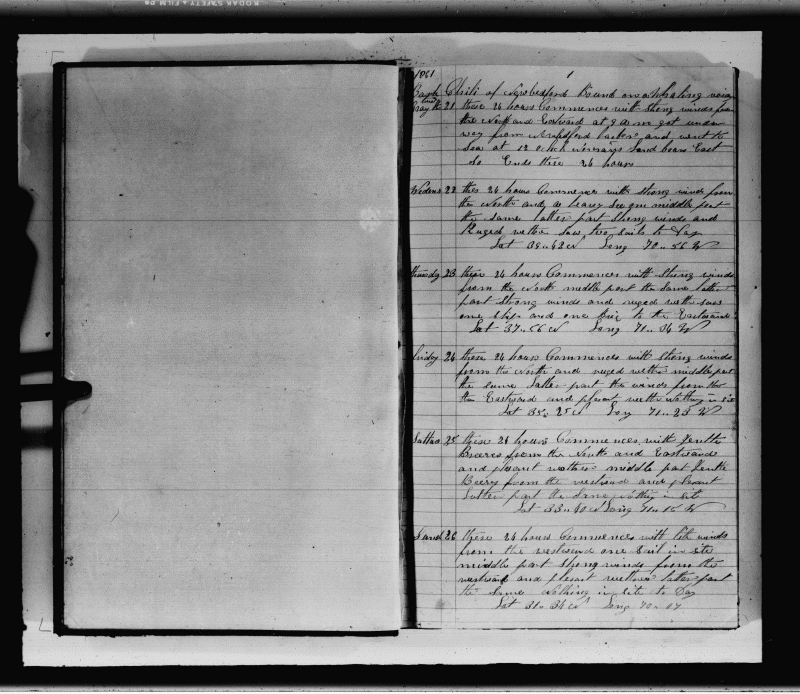 KODAK SAFETY FILM
1
Bark Chili of Newbedford Bound on a whaling
21 these 24 hours Commences with Strong winds from
the North and Eastward at 9 am got under
way from and went to
Sea at 12 oclock Land bears East
So Ends these 24 hours
22 these 24 hours Commences with Strong winds from
the North and a heavy Sea on middle part
the same latter part Strong winds and
Ruged wether Saw two Sails to Day
Lat 39..42 N Long 70..56 W
23 these 24 hours Commences with Strong winds
from the North middle part the Same latter
part Strong winds and ruged weth saw
one Ship and one Brig to the Eastward
Lat 37..56 N Long 71..04 W
Friday 24 these 24 hours Commences with Strong winds
from the North and ruged wether middle part
the same Latter part the winds from the
Eastward and plesent wether Nothing in site
Lat 35..25 N Long 71..23 W
25 these 24 hours Commences with Jentle
Breezes from the North and Eastward
and plesant wether middle part Jentle
from the westward and plesant
Latter part the Same Nothing in sit
Lat 33..40 N Long 71..15 W
Sund 26 these 24 hours Commences with lite winds
from the westward one Sail in site
middle part Strong winds from the
westward and plesant wether latter part
the Same Nothing in site to Day
Lat 31..34 N Long 70..07